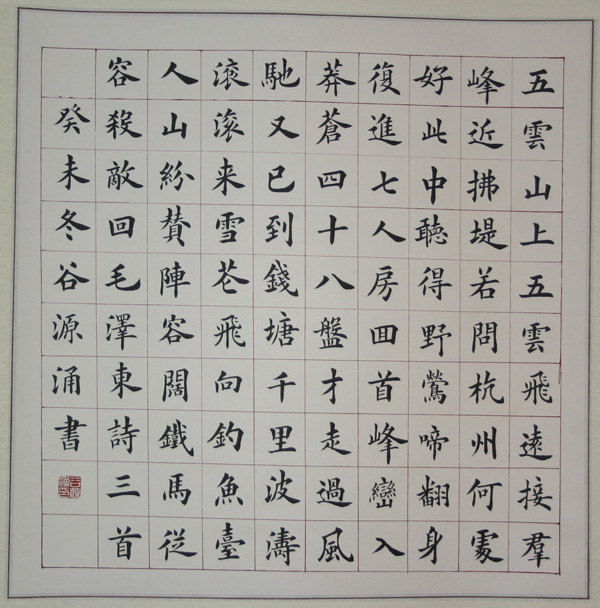 五雲山上五雲飛遠接羣
峰近拂堤若問杭州何處
好此中聽得野鶯啼翻身
復進七人房囬首峰巒入
莽蒼四十八盤才走過風
馳又已到錢塘千里波濤
滾滾来雪花飛向釣魚臺
人山紛贊陣容闊鐵馬從
容殺敵回毛澤東詩三首
癸未冬谷源涌書